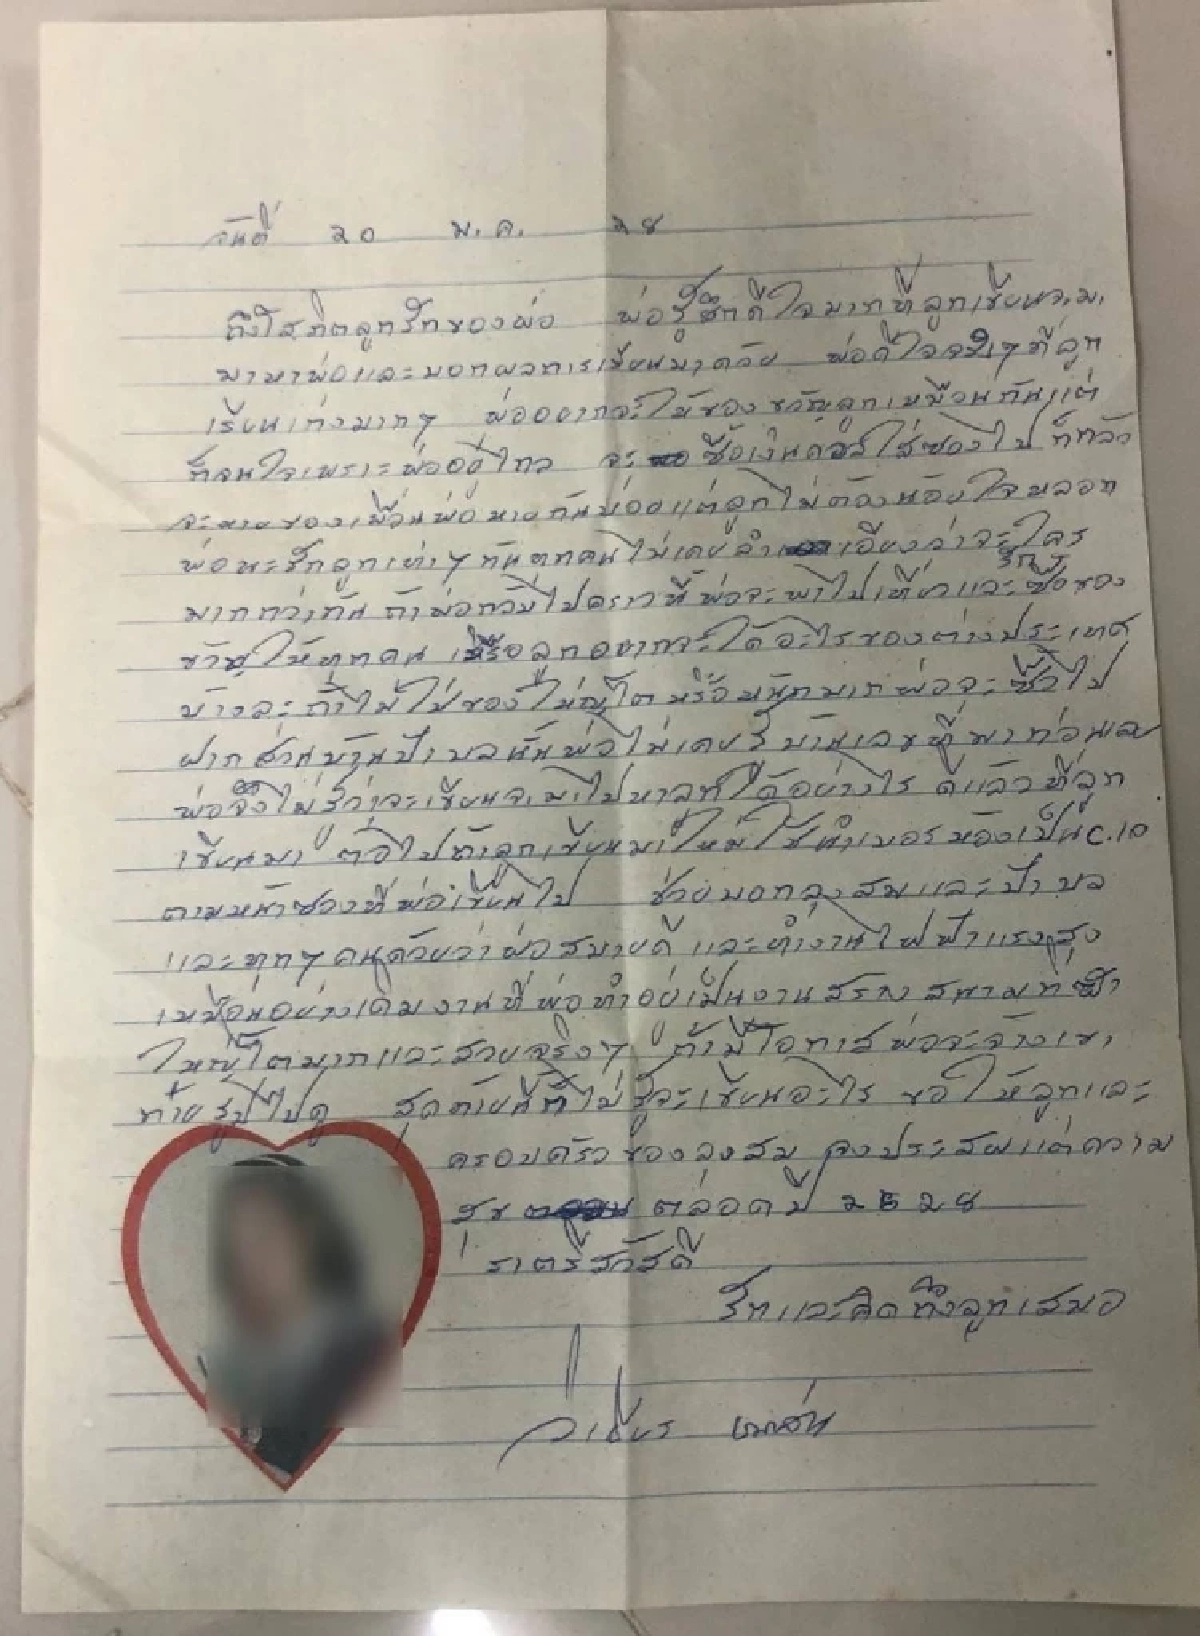 วันที่ 20 ม.ค. 28
ถึงโสภิตลูกรักของพ่อ พ่อรู้สึกดีใจมากที่ลูกเขียนจ.ม.
มาหาพ่อและบอกผลการเรียนมาด้วย พ่อดีใจจริงๆที่ลูก
เรียนเก่งมากๆ พ่ออยากจะให้ของขวัญลูกเหมือนกันแต่
ก็จนใจเพราะพ่ออยู่ไกล จะ ซื้อเงินดอลใส่ซองไป ก็กลัว
จะหายของเพื่อนพ่อหายกันบ่อยแต่ลูกไม่ต้องน้อยใจหลอก
พ่อนะรักลูกเท่าๆกันทุกคนไม่เคยลำเอียงว่าจะใคร
มากกว่ากันถ้าพ่อกลับไปคราวนี้พ่อจะพาไปเที่ยวและซื้อของ
ขวัญให้ทุกคน หรือลูกอยากจะได้อะไรของต่างประเทศ
บ้างละถ้าไม่ใช่ของใหญ่โตหรือหนักมากพ่อจะซื้อไป
ฝากส่วนบ้านป้าบลนั้นพ่อไม่เคยรู้บ้านเลขที่มาก่อนเลย
พ่อจึงไม่รู้ว่าจะเขียนจ.ม.ไปหาลูกได้อย่างไร ดีแล้วที่ลูก
เขียนมา ต่อไปถ้าลูกเขียนมาใหม่ใช้นำเบอรห้องเป็นC.10
ตามหน้าซองที่พ่อเขียนไป ช่วยบอกลุงสมและป้าบล
และทุกๆคนด้วยว่าพ่อสบายดี และทำงานไฟฟ้าแรงสูง
เหมือนอย่างเดิมงานที่พ่อทำอยู่เป็นงานสร้างสนามกีฬา
ใหญ่โตมากและสวยจริงๆ ถ้ามีโอกาสพ่อจะจ้างเขา
ถ่ายรูปไปดู สุดท้ายนี้ก็ไม่รู้จะเขียนอะไร ขอให้ลูกและ
ครอบครัวของลุงสม จงประสพแต่ความ
สุข ตลอดปี 2528
ราตรีสวัสดี
รักและคิดถึงลูกเสมอ
วิเชียร